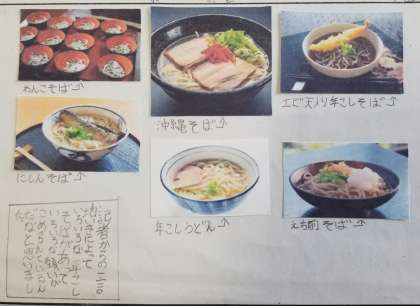 わんこそば↑
沖縄そば↑
エビ天入り年こしそば↑
にしんそば↑
年こしうどん↑
えち前そば↑
記者からの一言
地いきによって
いろいろな年こし
そばがあって
いろいろな願いが
こめられているん
だなとおもいまし
た